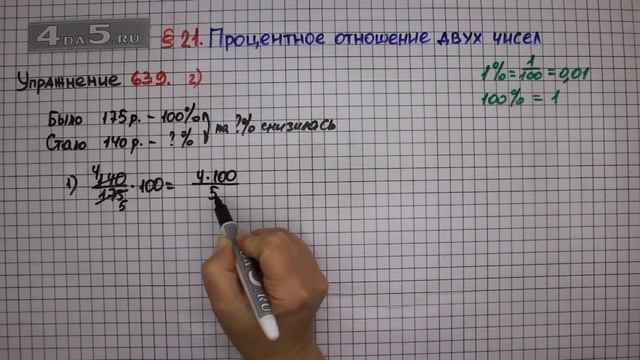 4DA5.RU § 21. Процентное отношение двух чисел
Упражнение 639. г)
1% = 1/100 = 0,01
100% = 1
Было 175 р. – 100%
Стало 140 р. – ? % на ?% снизилась
1) 4 140/175 5 · 100 = 4 · 100/5
DA5.RU